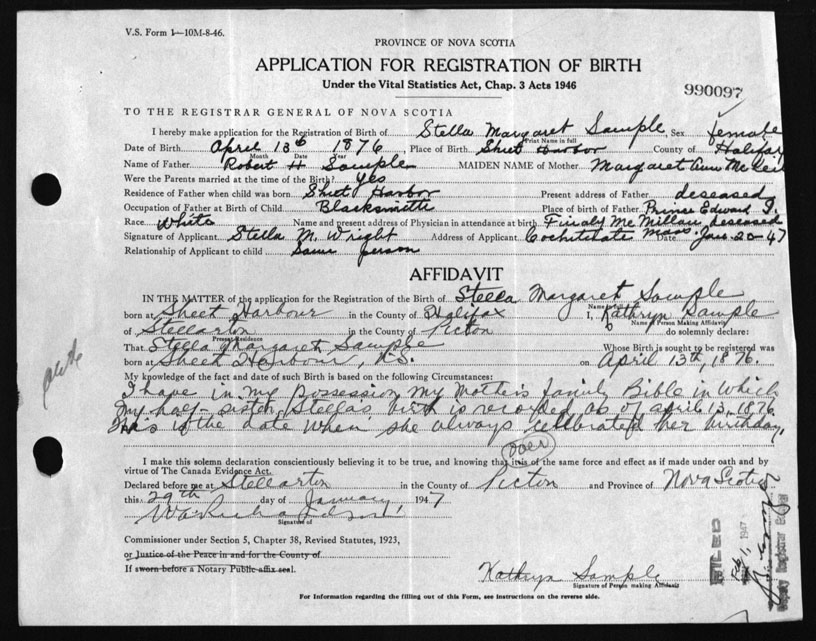 V.S. Form 1—10M-8-46.
PROVINCE OF NOVA SCOTIA
APPLICATION FOR REGISTRATION OF BIRTH
Under the Vital Statistics Act, Chap. 3 Acts 1946
990097
TO THE REGISTRAR GENERAL OF NOVA SCOTIA
I hereby make application for the Registration of Birth of Stella Margaret Sample, Sex female
Print Name in full
Date of Birth April 13th 1876, Place of Birth Sheet Harbor County of Halifax
Month Date Year
Name of Father Robert H Sample MAIDEN NAME of Mother Margaret Ann
Were the Parents married at the time of the Birth? Yes
Residence of Father when child was born Sheet Harbor Present address of Father deceased
Occupation of Father at Birth of Child Blacksmith Place of birth of Father Prince Edward I.
Race White Name and present address of Physician in attendance at birth Finaly McMillan, deceased
Signature of Applicant Stella M. Wright Address of Applicant Cochituate Mass. Date Jan-20-47
Relationship of Applicant to child Same person
AFFIDAVIT
IN THE MATTER of the application for the Registration of the Birth of Stella Margaret Sample
Name in full
born at Sheet Harbour in the County of Halifax I, Kathryn Sample
Name of Person Making Affidavit
of Stellarton in the County of Pictou do solemnly declare:
Present Residence
That Stella Margaret Sample Whose Birth is sought to be registered was
born at Sheet Harbour, N.S. on April 13th, 1876.
My knowledge of the fact and date of such Birth is based on the following Circumstances:
I have in my possession my Mother's family Bible in which
my half-sister, Stella's birth is recorded as of April 13, 1876.
This is the date when she always celebrated her birthday.
over
I make this solemn declaration conscientiously believing it to be true, and knowing that it is of the same force and effect as if made under oath and by
virtue of The Canada Evidence Act.
Declared before me at Stellarton in the County of Pictou and Province of Nova Scotia
this 29th day of January 1947
Signature of
Commissioner under Section 5, Chapter 38, Revised Statutes, 1923,
or Justice of the Peace in and for the County of
If sworn before a Notary Public affix seal.
Kathryn Sample
Signature of Person making Affidavit
For Information regarding the filling out of this Form, see instructions on the reverse side.
FILED
1947
Deputy Registrar General